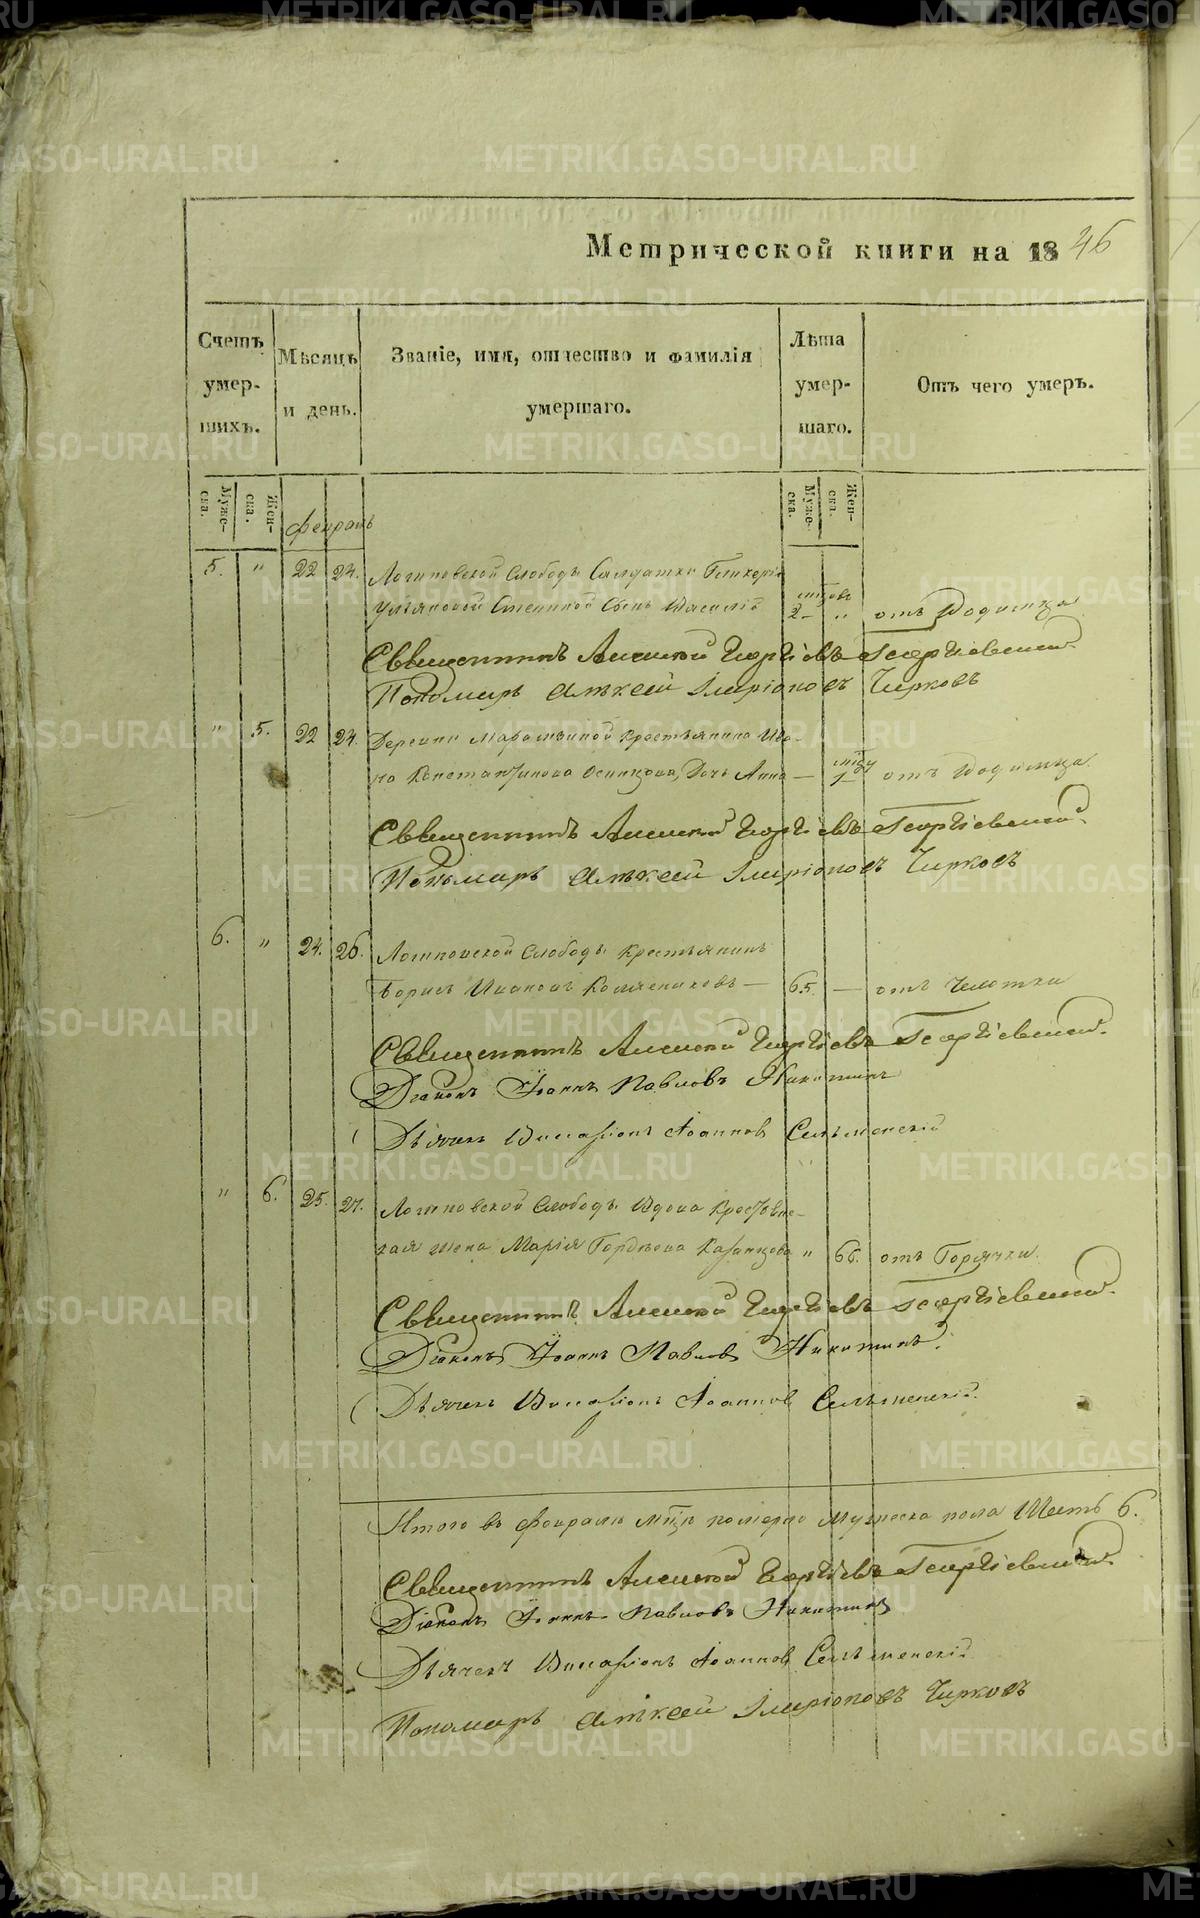 METRIKI.GASO-URAL.RU
Метрической книги на 1846
Счетъ умер-шихъ.
Мѣсяцъ и день.
Званіе, имя, отчество и фамилія умершаго.
Лѣта умер-шаго.
Отъ чего умеръ.
Муже-ска.
Жен-ска.
Муже-ска.
Жен-ска.
февраль
5. " 22 24. Логиновской Слободы Салдатки
сынъ Василій 2 " отъ Родимца
Священникъ Алексей Георгіевъ Георгіевскій.
Пономарь Алѣксей Иларіоновъ Чирковъ
" 5. 22 24. Деревни крестьянина Ива-
на Константинова Осинцова Дочь Анна — 1 отъ Родимца.
Священникъ Алексей Георгіевъ Георгіевскій.
Пономарь Алѣксей Иларіоновъ Чирковъ
6. " 24. 26. Логиновской Слободы крестьянинъ
Борисъ Ивановъ — 65. — отъ Чехотки
Священникъ Алексей Георгіевъ Георгіевскій.
Діаконъ Іоаннъ Павловъ Никитинъ
Дьячекъ Виссаріонъ Іоанновъ Селѣменскій
" 6. 25. 27. Логиновской Слободы Вдова Крестьянс-
кая жена Марія Гордѣева Казанцова " 66. отъ Горячки.
Священникъ Алексей Георгіевъ Георгіевскій.
Діаконъ Іоаннъ Павловъ Никитинъ.
Дьячекъ Виссаріонъ Іоанновъ Селѣменскій.
Итого въ февралѣ мцѣ померло мужеска пола Шесть 6.
Священникъ Алексей Георгіевъ Георгіевскій
Діаконъ Іоаннъ Павловъ Никитинъ
Дьячекъ Виссаріонъ Іоанновъ Селѣменскій
Пономарь Алѣксей Иларіоновъ Чирковъ